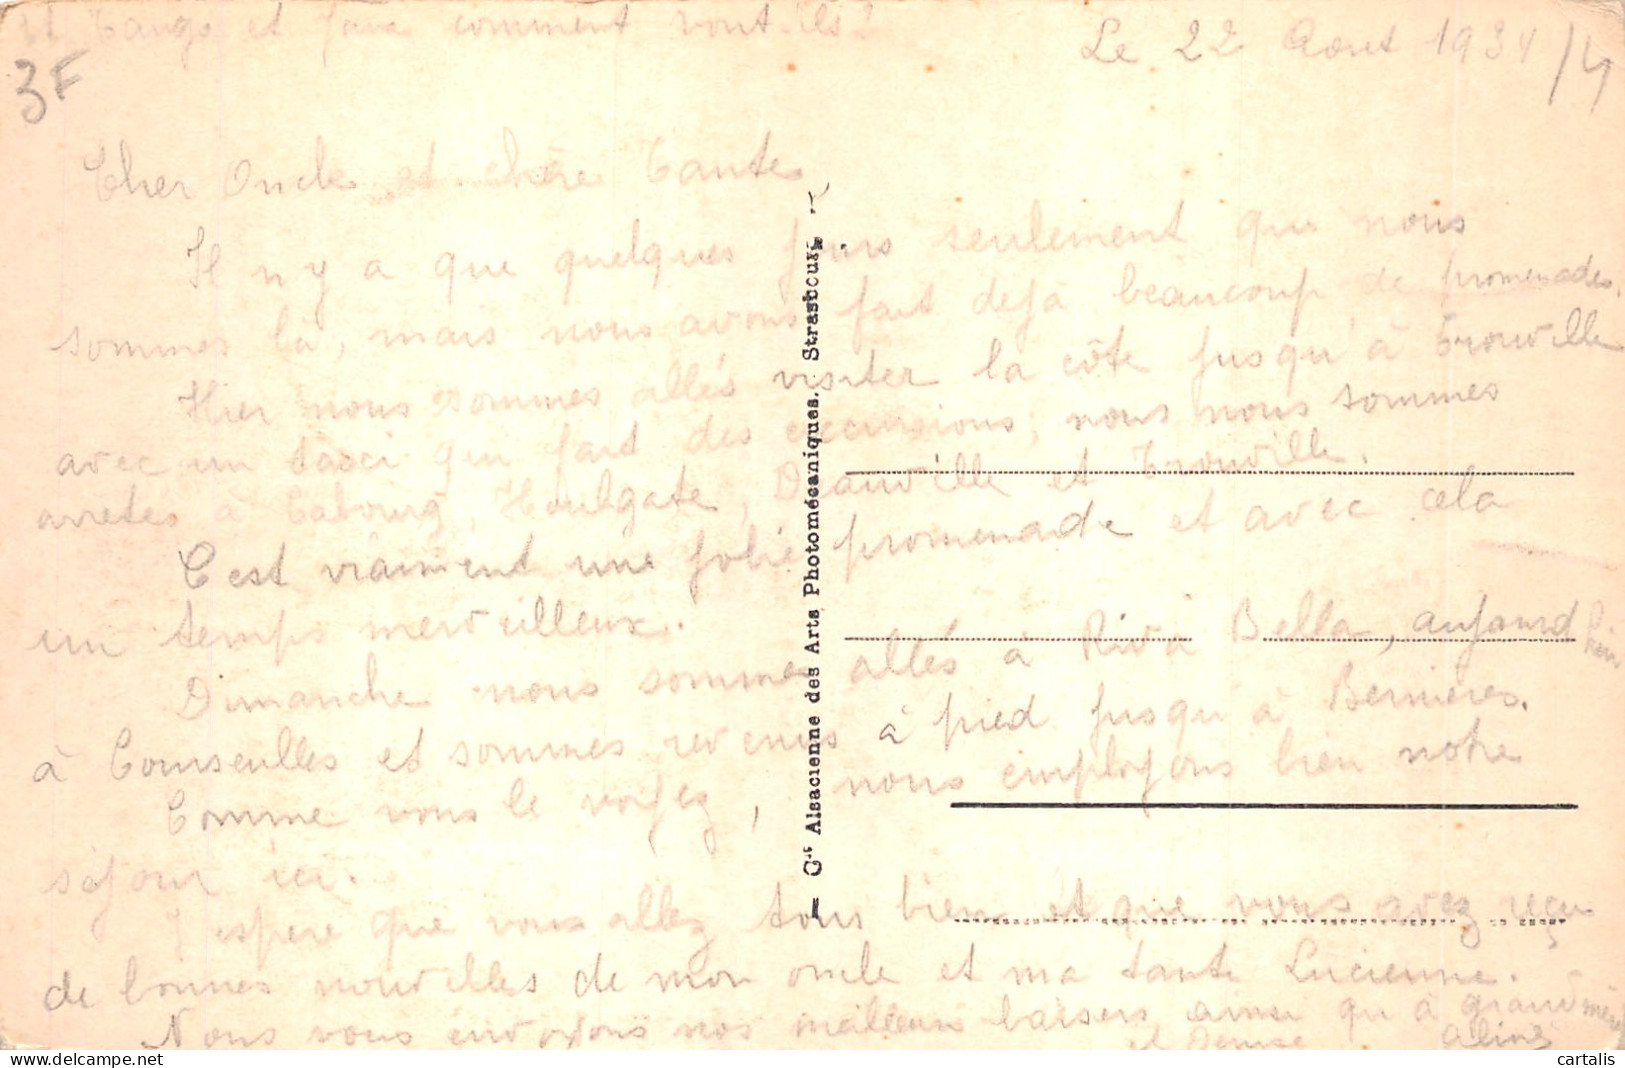 Et Tango et Java comment vont-ils ?
Le 22 Août 1934
3F
/4
Cher Oncle et chère Tante,
Il n'y a que quelques jours seulement que nous
sommes là, mais nous avons fait déjà beaucoup de promenades.
Hier nous sommes allés visiter la côte jusqu'à Trouville
avec un taxi qui fait des excursions, nous nous sommes
arretés à Cabourg, Houlgate, Deauville et Trouville.
C'est vraiment une jolie promenade et avec cela
un temps merveilleux.
Dimanche nous sommes allés à Riva Bella, aujourd'hui
à Courseulles et sommes revenus à pied jusqu'à Bernières.
Comme vous le voyez, nous employons bien notre
séjour ici.
J'espère que vous allez tous bien et que vous avez reçu
de bonnes nouvelles de mon oncle et ma tante Lucienne.
Nous vous envoyons nos meilleurs baisers ainsi qu'à grand mère
et Denise Aline
Cie Alsacienne des Arts Photomécaniques, Strasbourg
delcampe.net
cartalis